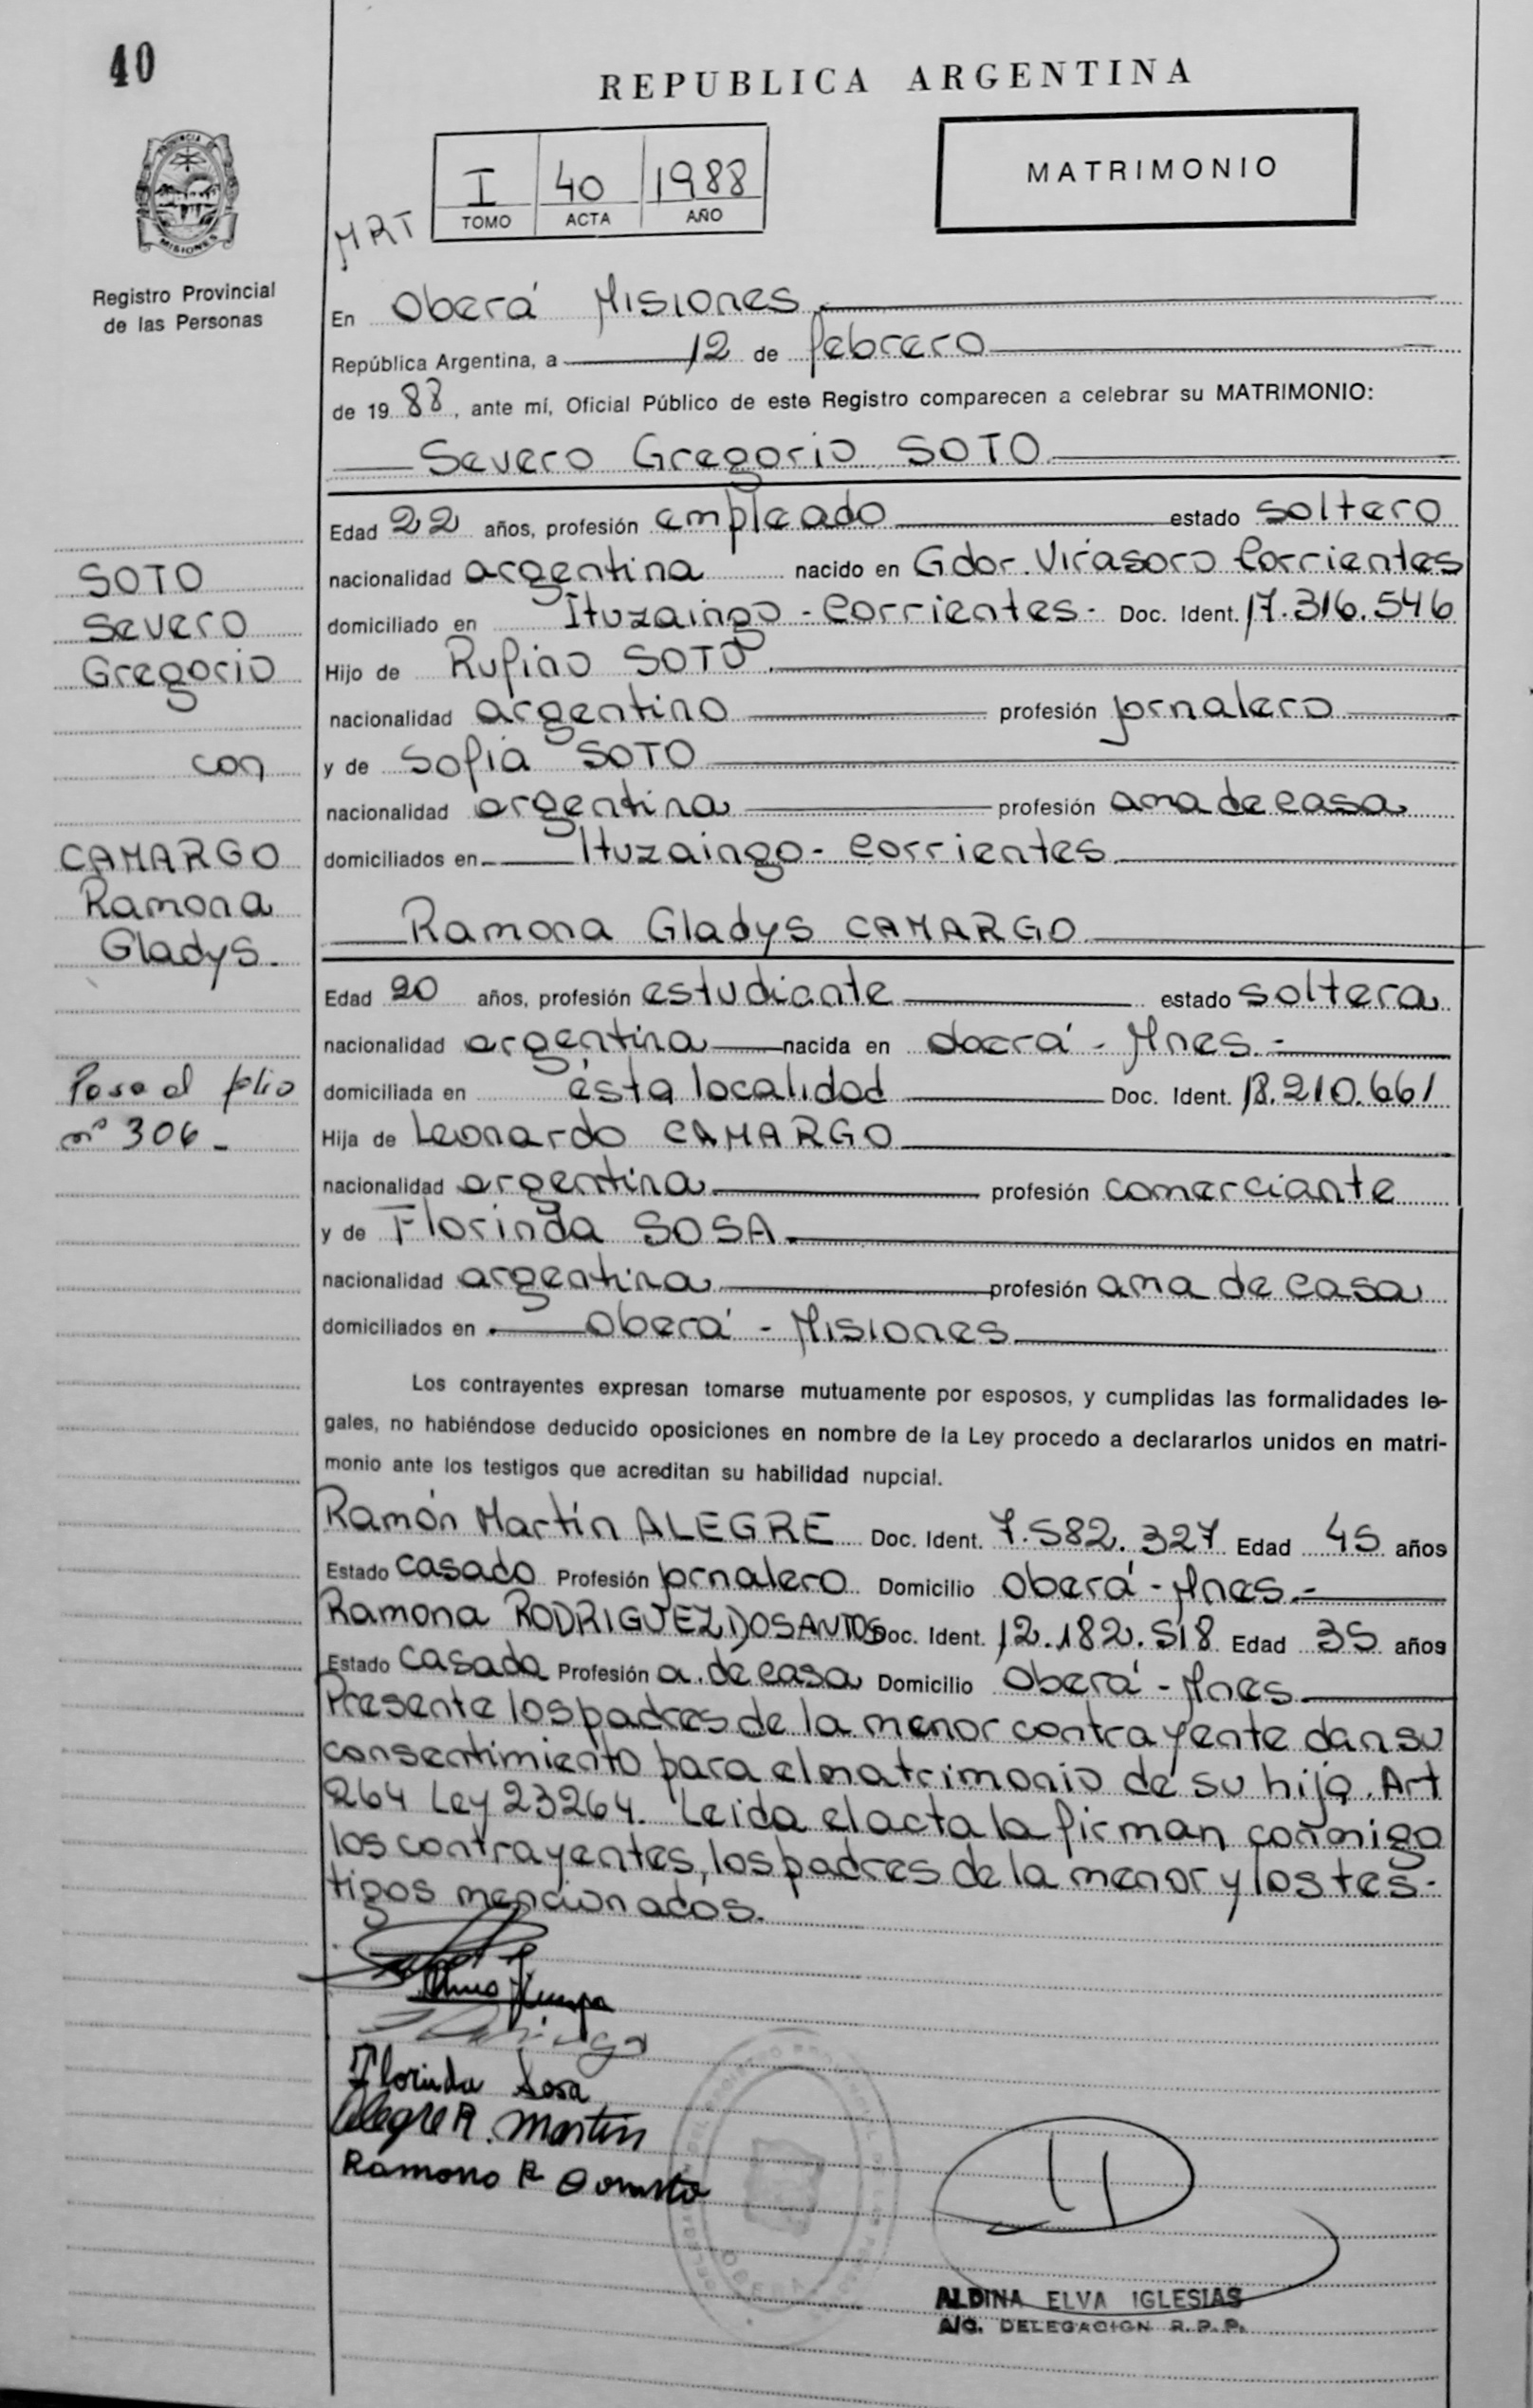 40
REPUBLICA ARGENTINA
PROVINCIA DE
MISIONES
Registro Provincial
de las Personas
I 40 1988
TOMO ACTA AÑO
MATRIMONIO
MRT
En Oberá Misiones
República Argentina, a 12 de febrero
de 19 88, ante mí, Oficial Público de este Registro comparecen a celebrar su MATRIMONIO:
Severo Gregorio SOTO
Edad 22 años, profesión empleado estado soltero
nacionalidad argentina nacido en Gdor. Virasoro Corrientes
domiciliado en Ituzaingo - Corrientes - Doc. Ident. 17.316.546
Hijo de Rufino SOTO
nacionalidad argentino profesión jornalero
y de Sofia SOTO
nacionalidad argentina profesión ama de casa
domiciliados en Ituzaingo - Corrientes
SOTO
Severo
Gregorio
con
CAMARGO
Ramona
Gladys.
Ramona Gladys CAMARGO
Edad 20 años, profesión estudiante estado soltera
nacionalidad argentina nacida en Oberá - Mnes.-
domiciliada en ésta localidad Doc. Ident. 18.210.661
Hija de Leonardo CAMARGO
nacionalidad argentina profesión comerciante
y de Florinda SOSA
nacionalidad argentina profesión ama de casa
domiciliados en Oberá - Misiones
Pasa al folio
nº 306 -
Los contrayentes expresan tomarse mutuamente por esposos, y cumplidas las formalidades le-
gales, no habiéndose deducido oposiciones en nombre de la Ley procedo a declararlos unidos en matri-
monio ante los testigos que acreditan su habilidad nupcial.
Ramón Martín ALEGRE Doc. Ident. 7.582.327 Edad 45 años
Estado casado Profesión jornalero Domicilio Oberá - Mnes.-
Ramona RODRIGUEZ DOSANTOS Doc. Ident. 12.182.518 Edad 35 años
Estado casada Profesión a. de casa Domicilio Oberá - Mnes
Presente los padres de la menor contrayente dan su
consentimiento para el matrimonio de su hija. Art
264 Ley 23264. Leida el acta la firman conmigo
los contrayentes, los padres de la menor y los tes-
tigos mencionados.
Florinda Sosa
Alegre R. Martin
Ramona R
OBERA
ALDINA ELVA IGLESIAS
A/C. DELEGACION R. P. P.